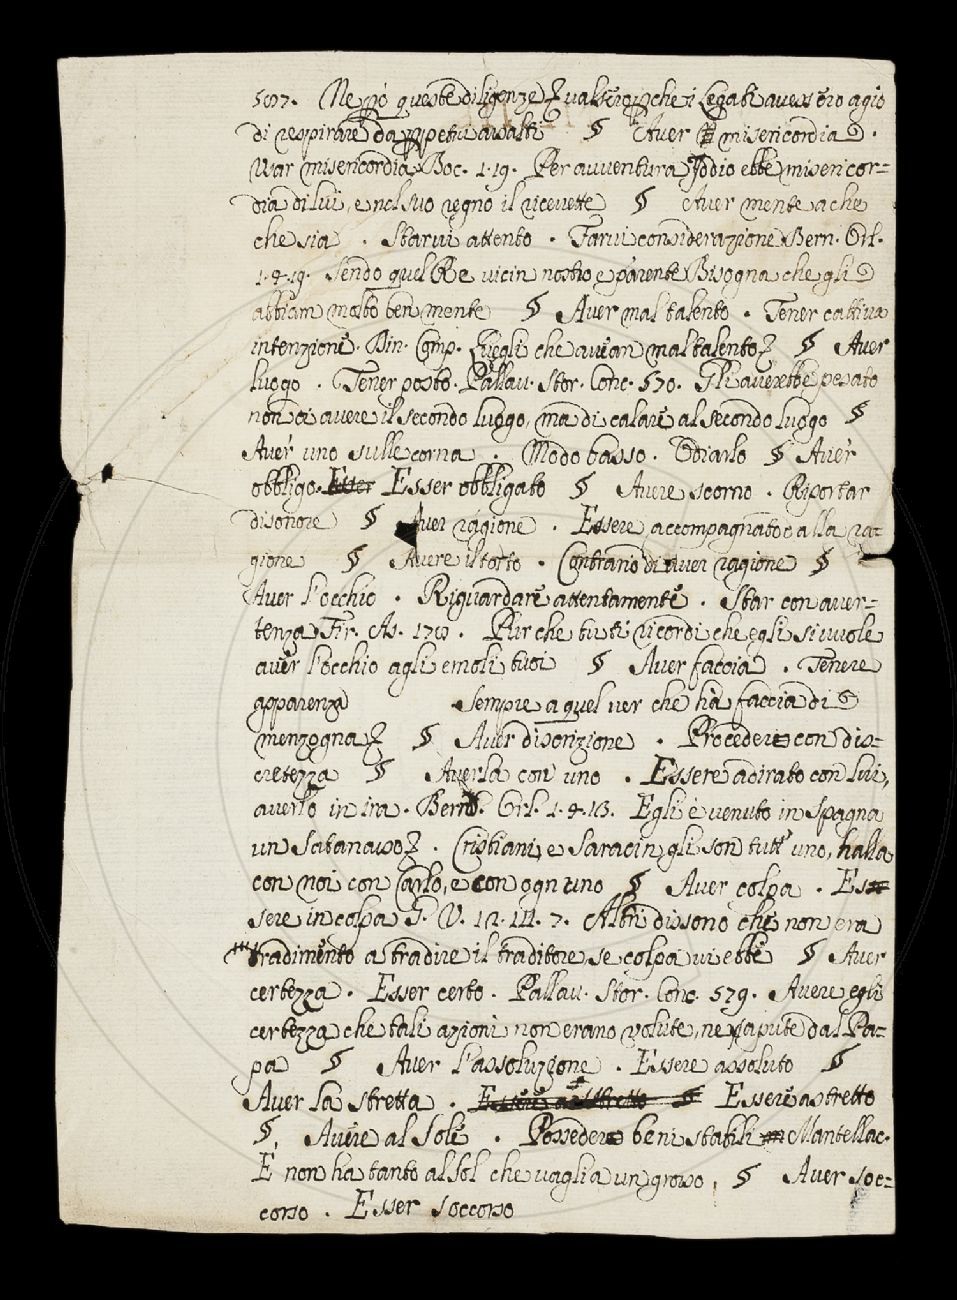 507. Ne però queste diligenze valsero, che i Legati avessero agio
di respirare da assalti § Aver misericordia.
Usar misericordia Boc. 1. 19. Per avventura Iddio ebbe misericor=
dia di lui, e nel suo regno il ricevette § Aver mente a che
che sia . Starvi attento . Farvi considerazione Bern. Orl.
1. 4. 19. Sendo quel Re vicin nostro e parente Bisogna che gli
abbiam molto ben mente § Aver mal talento . Tener cattiva
intenzione . Din. Comp. Quegli che avean mal talento § Aver
luogo . Tener posto . Pallav. Stor. Conc. 570. Gli averebbe pesato
non di avere il secondo luogo, ma di calare al secondo luogo §
Aver uno sulle corna . Modo basso . Odiarlo § Aver
obbligo. Esser Esser obbligato § Avere scorno . Riportar
disonore § Aver ragione . Essere accompagnato alla ra=
gione § Avere il torto . Contrario di aver ragione §
Aver l'occhio . Riguardare attentamente . Star con aver=
tenza Fir. As. 170. Pur che tu ti ricordi che egli si vuole
aver l'occhio agli emoli tuoi § Aver faccia . Tenere
apparenza Sempre a quel ver che hà faccia di
menzogna § Aver discrizione . Procedere con dis=
cretezza § Averla con uno . Essere adirato con lui,
averlo in ira . Bern. Orl. 1. 4. 13. Egli è venuto in Spagna
un Satanasso . Cristiani, e Saracin gli son tutt'uno, halla
con noi con Carlo, e con ogn uno § Aver colpa . Es
sere in colpa G. V. 12. 111. 7. Altri dissono che non era
tradimento a tradire il traditore, se colpa vi ebbe § Aver
certezza . Esser certo . Pallav. Stor. Conc. 579. Avere egli
certezza che tali azioni non erano volute, ne sapute dal Pa=
pa § Aver l'assoluzione . Essere assoluto §
Aver la stretta . Essere astretto § Essere astretto
§, Avere al Sole . Possedere beni stabili Mantellac.
E non ha tanto al Sol che vaglia un grosso, § Aver soc=
corso . Esser soccorso